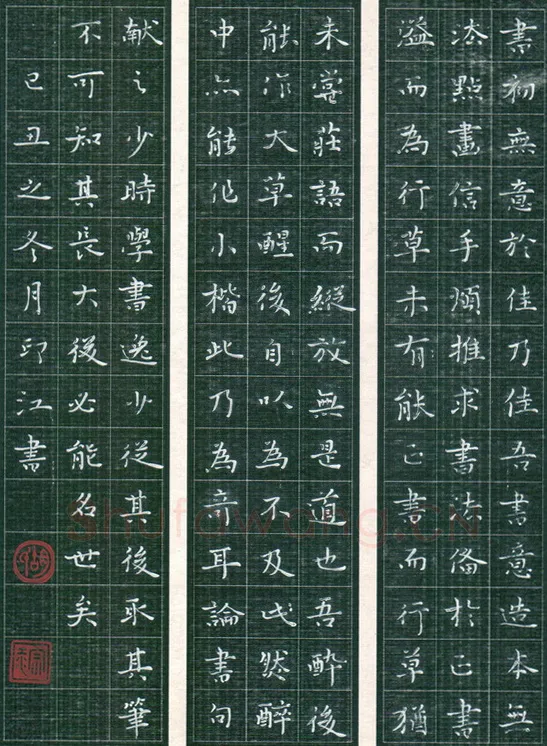 書初無意於佳乃佳吾書意造本無
法點畫信手煩推求書法備於正書
溢而為行草未有能正書而行草猶
未嘗莊語而縱放無是道也吾醉後
能作大草醒後自以為不及此然醉
中亦能作小楷此乃為奇耳論書句
献之少時學書逸少從其後取其筆
不可知其長大後必能名世矣
己丑之冬月印江書
shufawang.CN